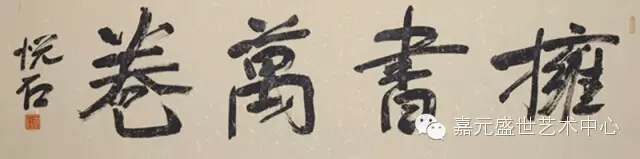 擁書萬卷
悦石
嘉元盛世艺术中心